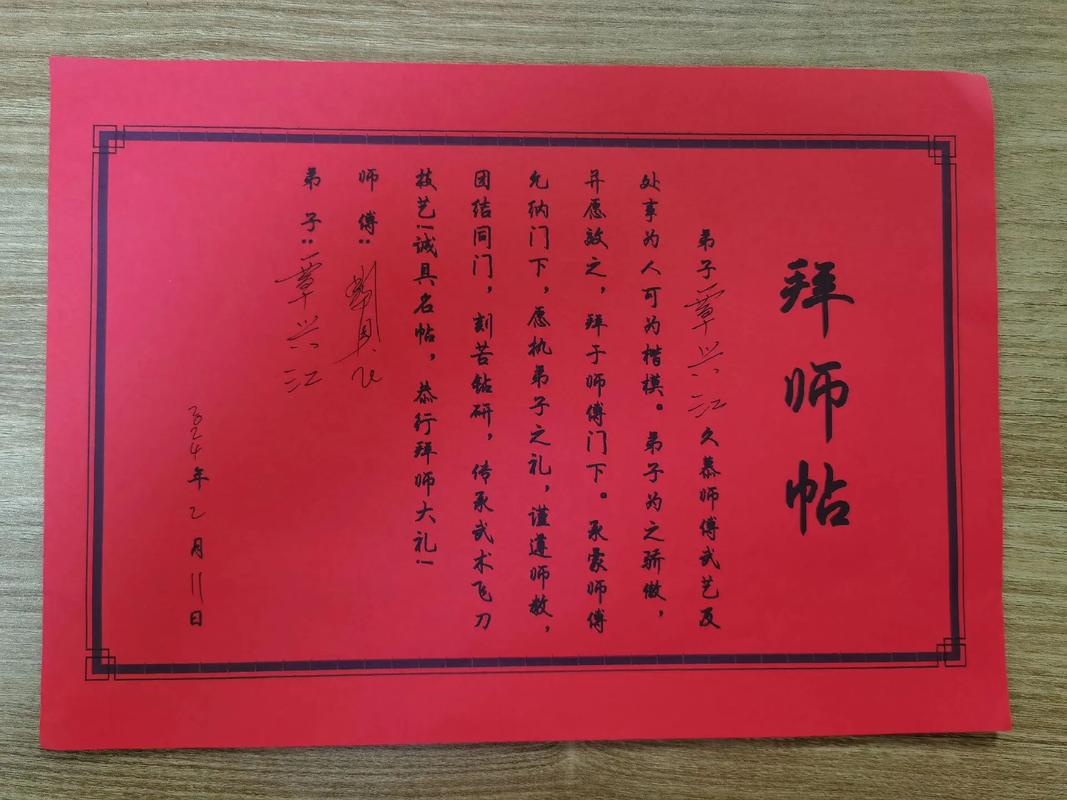 拜师帖
弟子覃兴江久慕师傅武艺及
处事为人可为楷模。弟子为之骄傲，
并愿效之，拜于师傅门下。承蒙师傅
允纳门下，愿执弟子之礼，谨遵师教，
团结同门，刻苦钻研，传承武术飞刀
技艺！诚具名帖，恭行拜师大礼！
师傅：
弟子：覃兴江
2024年2月11日